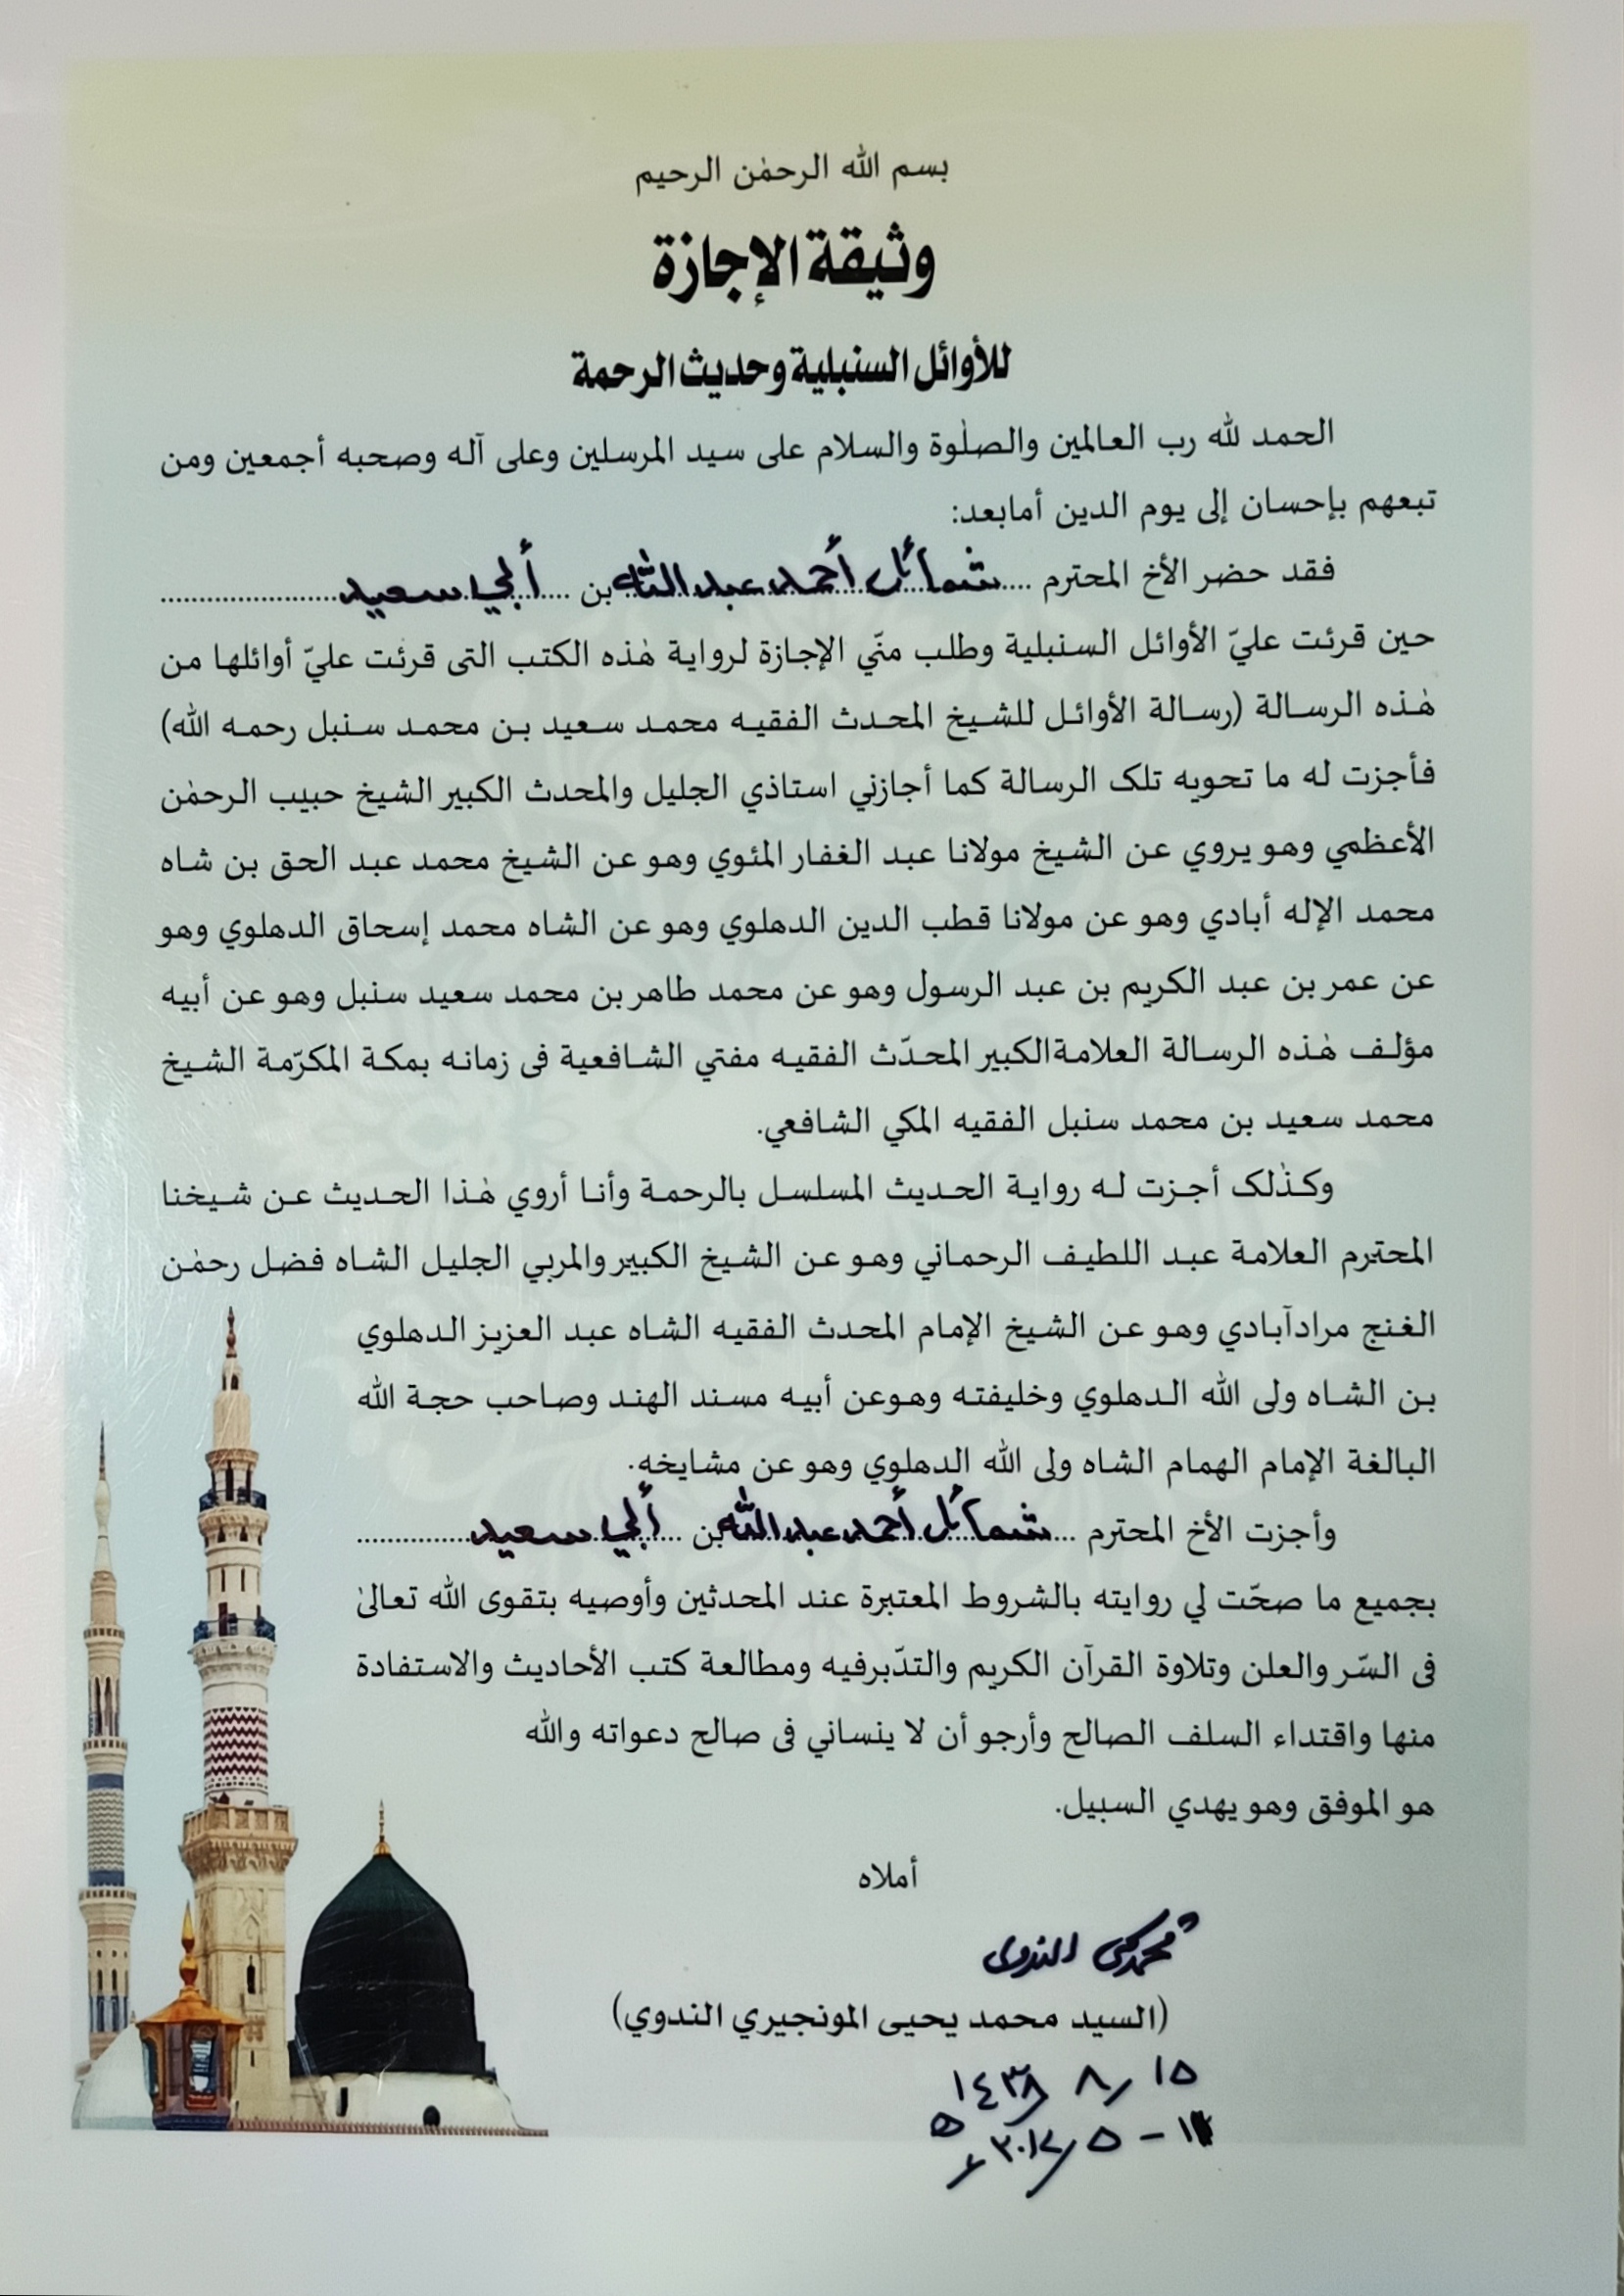 بسم الله الرحمٰن الرحيم
وثيقة الإجازة
للأوائل السنبلية وحديث الرحمة
الحمد لله رب العالمين والصلٰوة والسلام على سيد المرسلين وعلى آله وصحبه أجمعين ومن
تبعهم بإحسان إلى يوم الدين أمابعد:
فقد حضر الأخ المحترم .... شمائل أحمد عبد الله بن .... أبي سعيد ......................
حين قرئت عليّ الأوائل السنبلية وطلب منّي الإجازة لرواية هٰذه الكتب التى قرئت عليّ أوائلها من
هٰذه الرسالة (رسالة الأوائل للشيخ المحدث الفقيه محمد سعيد بن محمد سنبل رحمه الله)
فأجزت له ما تحويه تلک الرسالة كما أجازني استاذي الجليل والمحدث الكبير الشيخ حبيب الرحمٰن
الأعظمي وهو يروي عن الشيخ مولانا عبد الغفار المئوي وهو عن الشيخ محمد عبد الحق بن شاه
محمد الإله أبادي وهو عن مولانا قطب الدين الدهلوي وهو عن الشاه محمد إسحاق الدهلوي وهو
عن عمر بن عبد الكريم بن عبد الرسول وهو عن محمد طاهر بن محمد سعيد سنبل وهو عن أبيه
مؤلف هٰذه الرسالة العلامةالكبير المحدّث الفقيه مفتي الشافعية فى زمانه بمكة المكرّمة الشيخ
محمد سعيد بن محمد سنبل الفقيه المكي الشافعي.
وكذٰلک أجزت له رواية الحديث المسلسل بالرحمة وأنا أروي هٰذا الحديث عن شيخنا
المحترم العلامة عبد اللطيف الرحماني وهو عن الشيخ الكبير والمربي الجليل الشاه فضل رحمٰن
الغنج مرادآبادي وهو عن الشيخ الإمام المحدث الفقيه الشاه عبد العزيز الدهلوي
بن الشاه ولى الله الدهلوي وخليفته وهوعن أبيه مسند الهند وصاحب حجة الله
البالغة الإمام الهمام الشاه ولى الله الدهلوي وهو عن مشايخه.
وأجزت الأخ المحترم .... شمائل أحمد عبد الله بن .... أبي سعيد ................
بجميع ما صحّت لي روايته بالشروط المعتبرة عند المحدثين وأوصيه بتقوى الله تعالىٰ
فى السّر والعلن وتلاوة القرآن الكريم والتدّبرفيه ومطالعة كتب الأحاديث والاستفادة
منها واقتداء السلف الصالح وأرجو أن لا ينساني فى صالح دعواته والله
هو الموفق وهو يهدي السبيل.
أملاه
محمد يحيى الندوى
(السيد محمد يحيى المونجيري الندوي)
١٥/ ٨/ ١٤٣٨ ه
٥/ ٢٠١٧ء